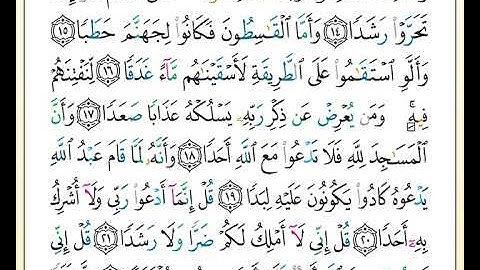 تَحَرَّوْا۟ رَشَدًا ١٤ وَأَمَّا الْقَـٰسِطُونَ فَكَانُوا۟ لِجَهَنَّمَ حَطَبًا ١٥
وَأَلَّوِ اسْتَقَـٰمُوا۟ عَلَى الطَّرِيقَةِ لَأَسْقَيْنَـٰهُم مَّآءً غَدَقًا ١٦ لِنَفْتِنَهُمْ
فِيهِ ۚ وَمَن يُعْرِضْ عَن ذِكْرِ رَبِّهِۦ يَسْلُكْهُ عَذَابًا صَعَدًا ١٧ وَأَنَّ
الْمَسَـٰجِدَ لِلَّهِ فَلَا تَدْعُوا۟ مَعَ اللَّهِ أَحَدًا ١٨ وَأَنَّهُۥ لَمَّا قَامَ عَبْدُ اللَّهِ
يَدْعُوهُ كَادُوا۟ يَكُونُونَ عَلَيْهِ لِبَدًا ١٩ قُلْ إِنَّمَآ أَدْعُوا۟ رَبِّى وَلَآ أُشْرِكُ
بِهِۦٓ أَحَدًا ٢٠ قُلْ إِنِّى لَآ أَمْلِكُ لَكُمْ ضَرًّا وَلَا رَشَدًا ٢١ قُلْ إِنِّى